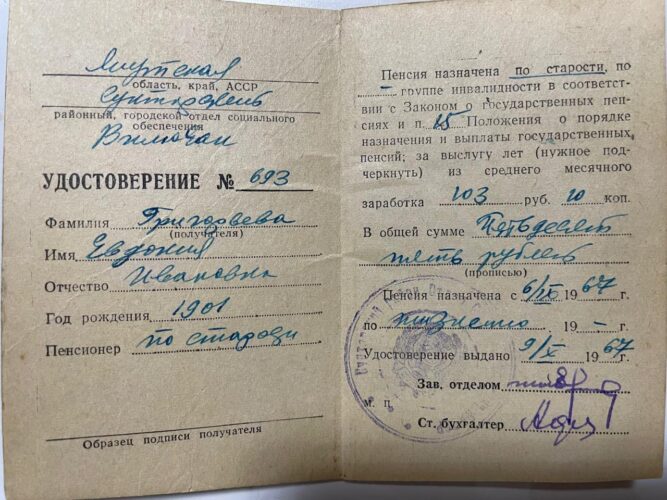 Якутская
область, край, АССР
районный, городской отдел социального
обеспечения
УДОСТОВЕРЕНИЕ № 693
Фамилия Григорьева
(получателя)
Имя Евдокия
Отчество Ивановна
Год рождения 1901
Пенсионер по старости
Образец подписи получателя
Пенсия назначена по старости, по
– группе инвалидности в соответст-
вии с Законом о государственных пен-
сиях и п. 15 Положения о порядке
назначения и выплаты государственных
пенсий; за выслугу лет (нужное под-
черкнуть) из среднего месячного
заработка 103 руб. 10 коп.
В общей сумме Пятьдесят
пять рублей
(прописью)
Пенсия назначена с 6/IX 1967 г.
по пожизненно 19 – г.
Удостоверение выдано 9/X 1967 г.
Зав. отделом
М. П.
Ст. бухгалтер